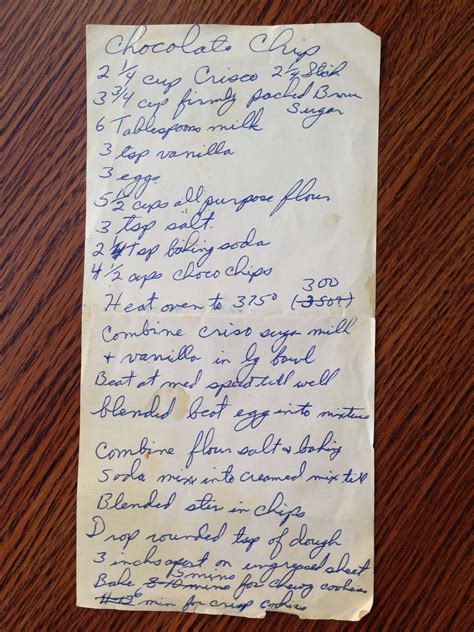 Chocolate Chip
2 1/4 cup Crisco 2 1/4 Stick
3 3/4 cup firmly packed Brown
Sugar
6 Tablespoons milk
3 tsp vanilla
3 eggs
5 1/2 cups all purpose flour
3 tsp salt.
2 1/4 tsp baking soda
4 1/2 cups choco chips
300
Heat oven to 375° (350°)
Combine criso sugar milk
+ vanilla in lg bowl
Beat at med speed till well
blended beat egg into mixture
Combine flour salt & baking
Soda mix into creamed mix till
Blended stir in chips
Drop rounded tsp of dough
3 inchs apart on ungreased sheet
15 mins
Bake mins for chewy cookies
min for crisp cookies